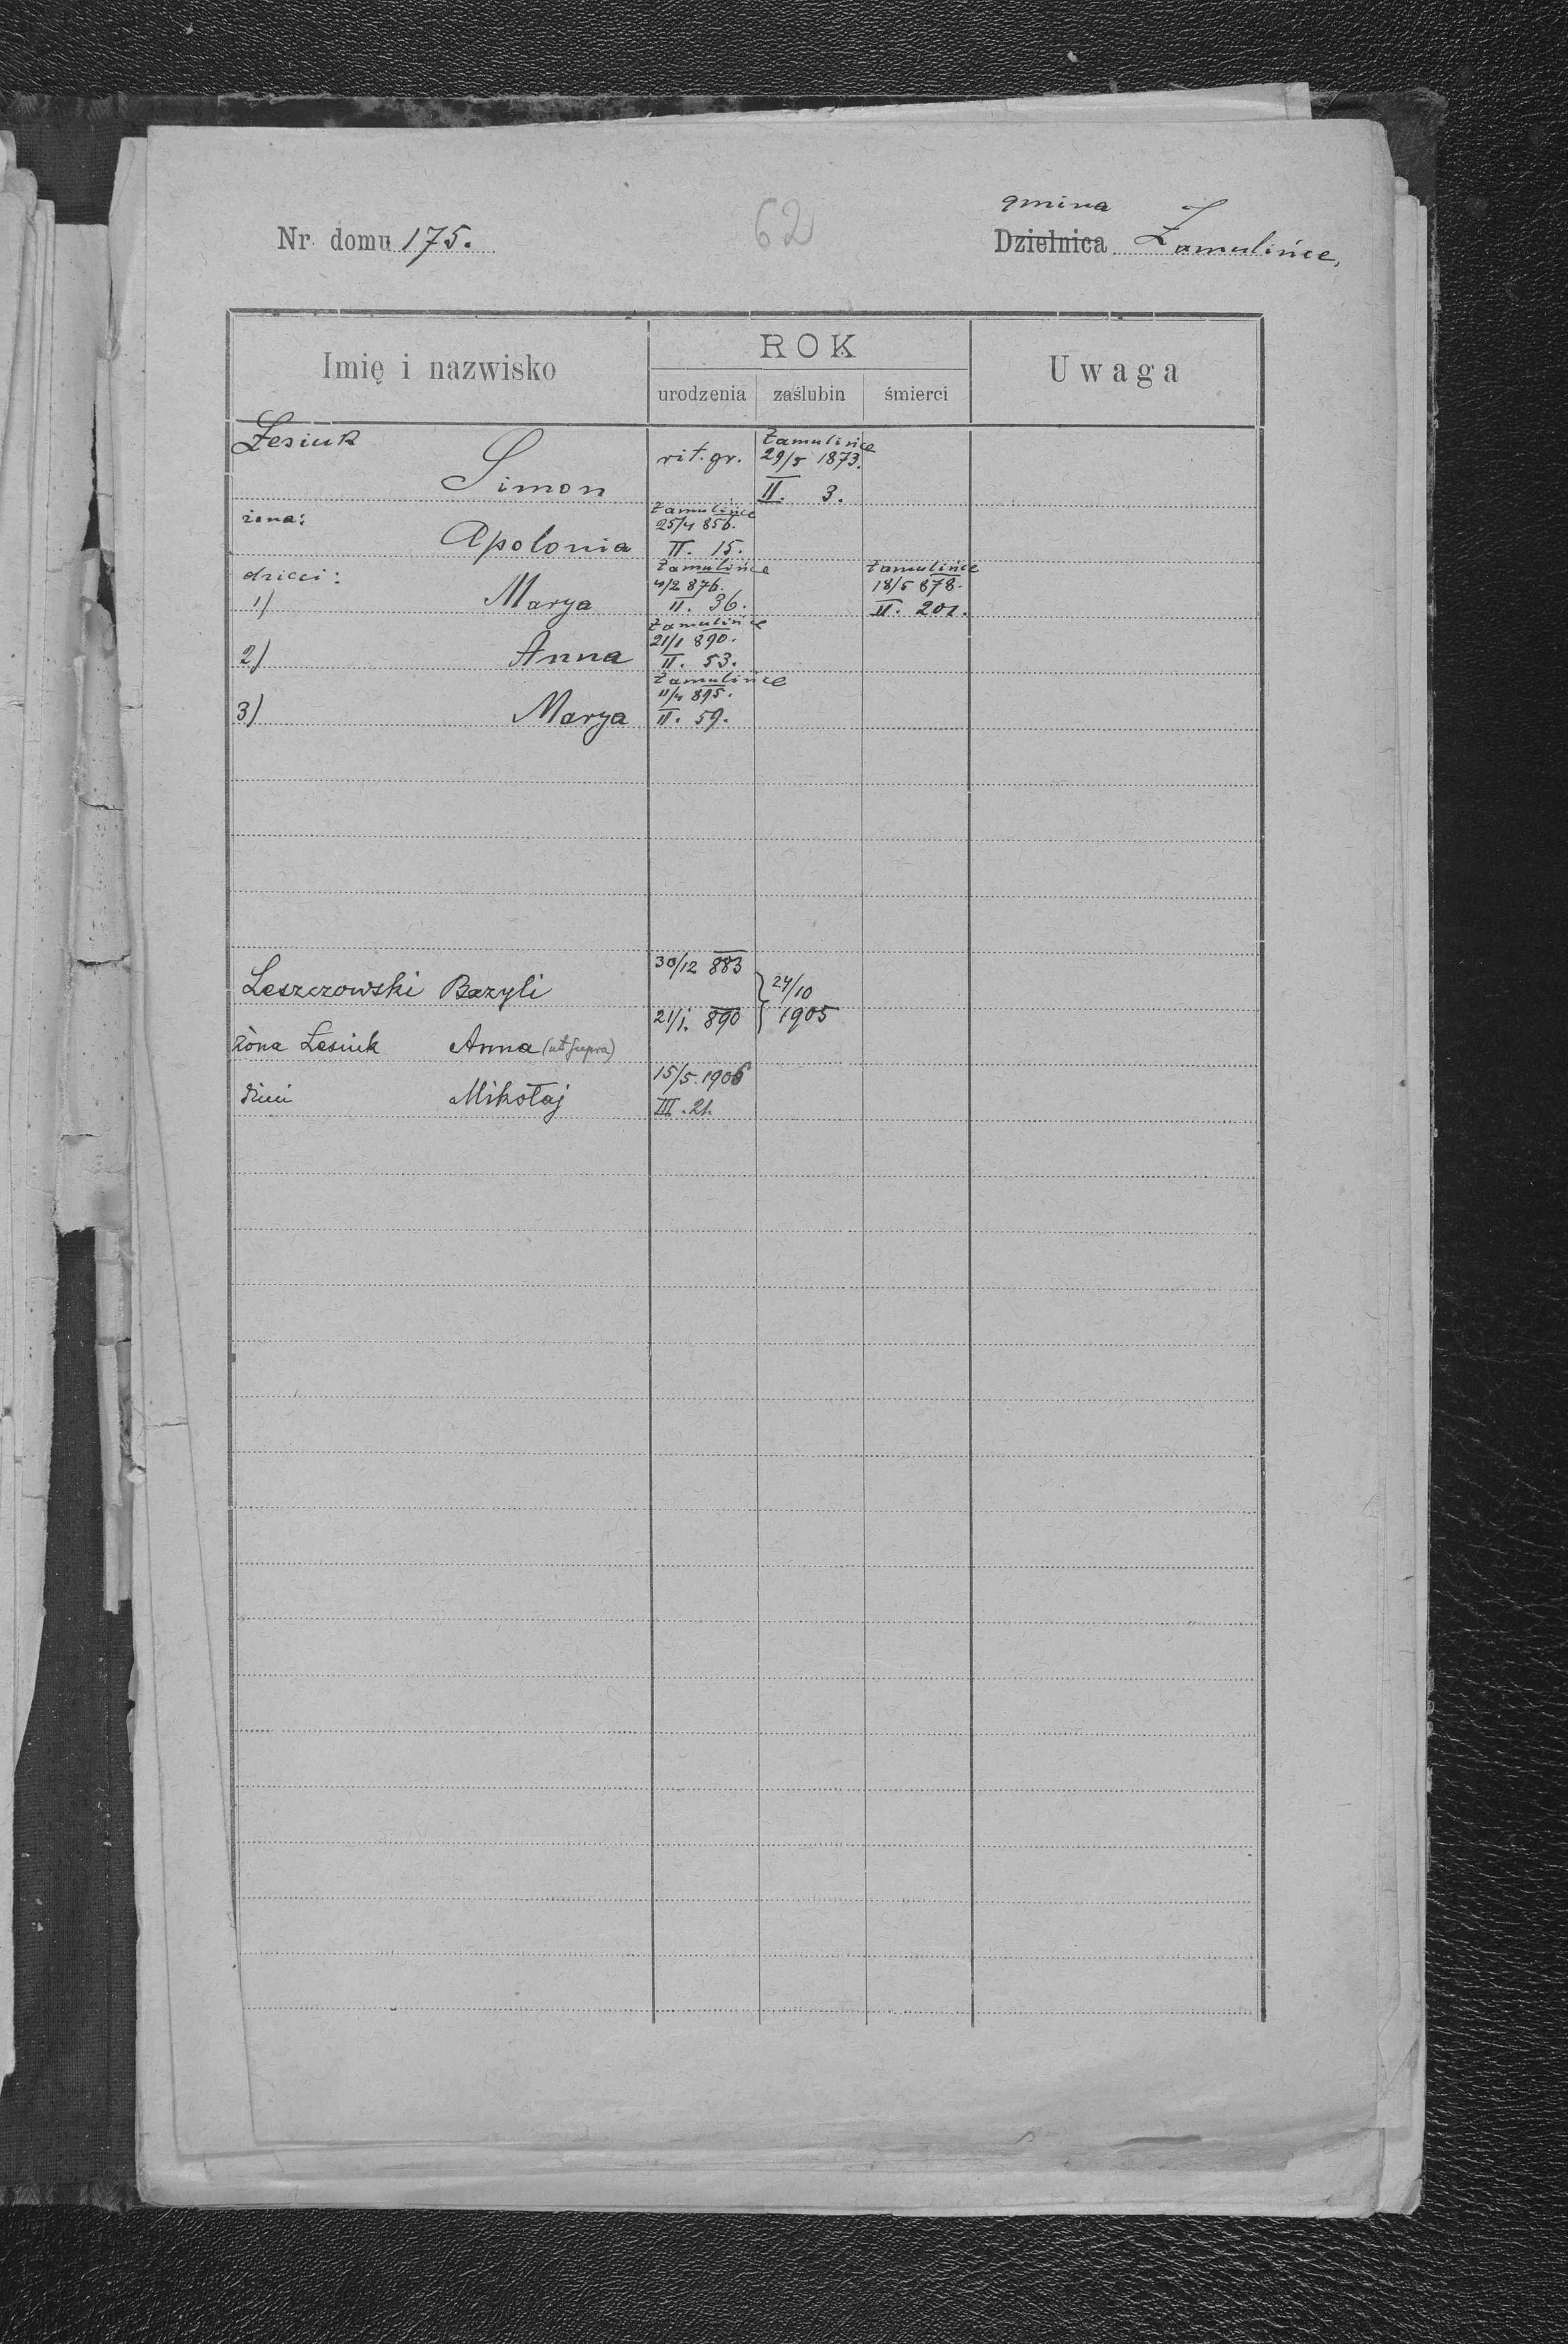 gmina
Nr. domu 175. 62 Dzielnica Zamulińce,
Imię i nazwisko ROK Uwaga
urodzenia zaślubin śmierci
Łesiuk
Simon rit. gr. Zamulińce
29/5 1873.
II. 3.
żona: Apolonia Zamulińce
25/4 856.
II. 15.
dzieci:
1) Marya Zamulińce
4/2 876.
II. 36.
Zamulińce
18/5 878.
II. 201.
2) Anna Zamulińce
21/1 890.
II. 53.
3) Marya Zamulińce
11/4 895.
II. 59.
Leszczowski Bazyli 30/12 883 24/10
1905
żona Łesiuk Anna (ut supra) 21/1. 890
Mikołaj 15/5. 1906
III. 21.